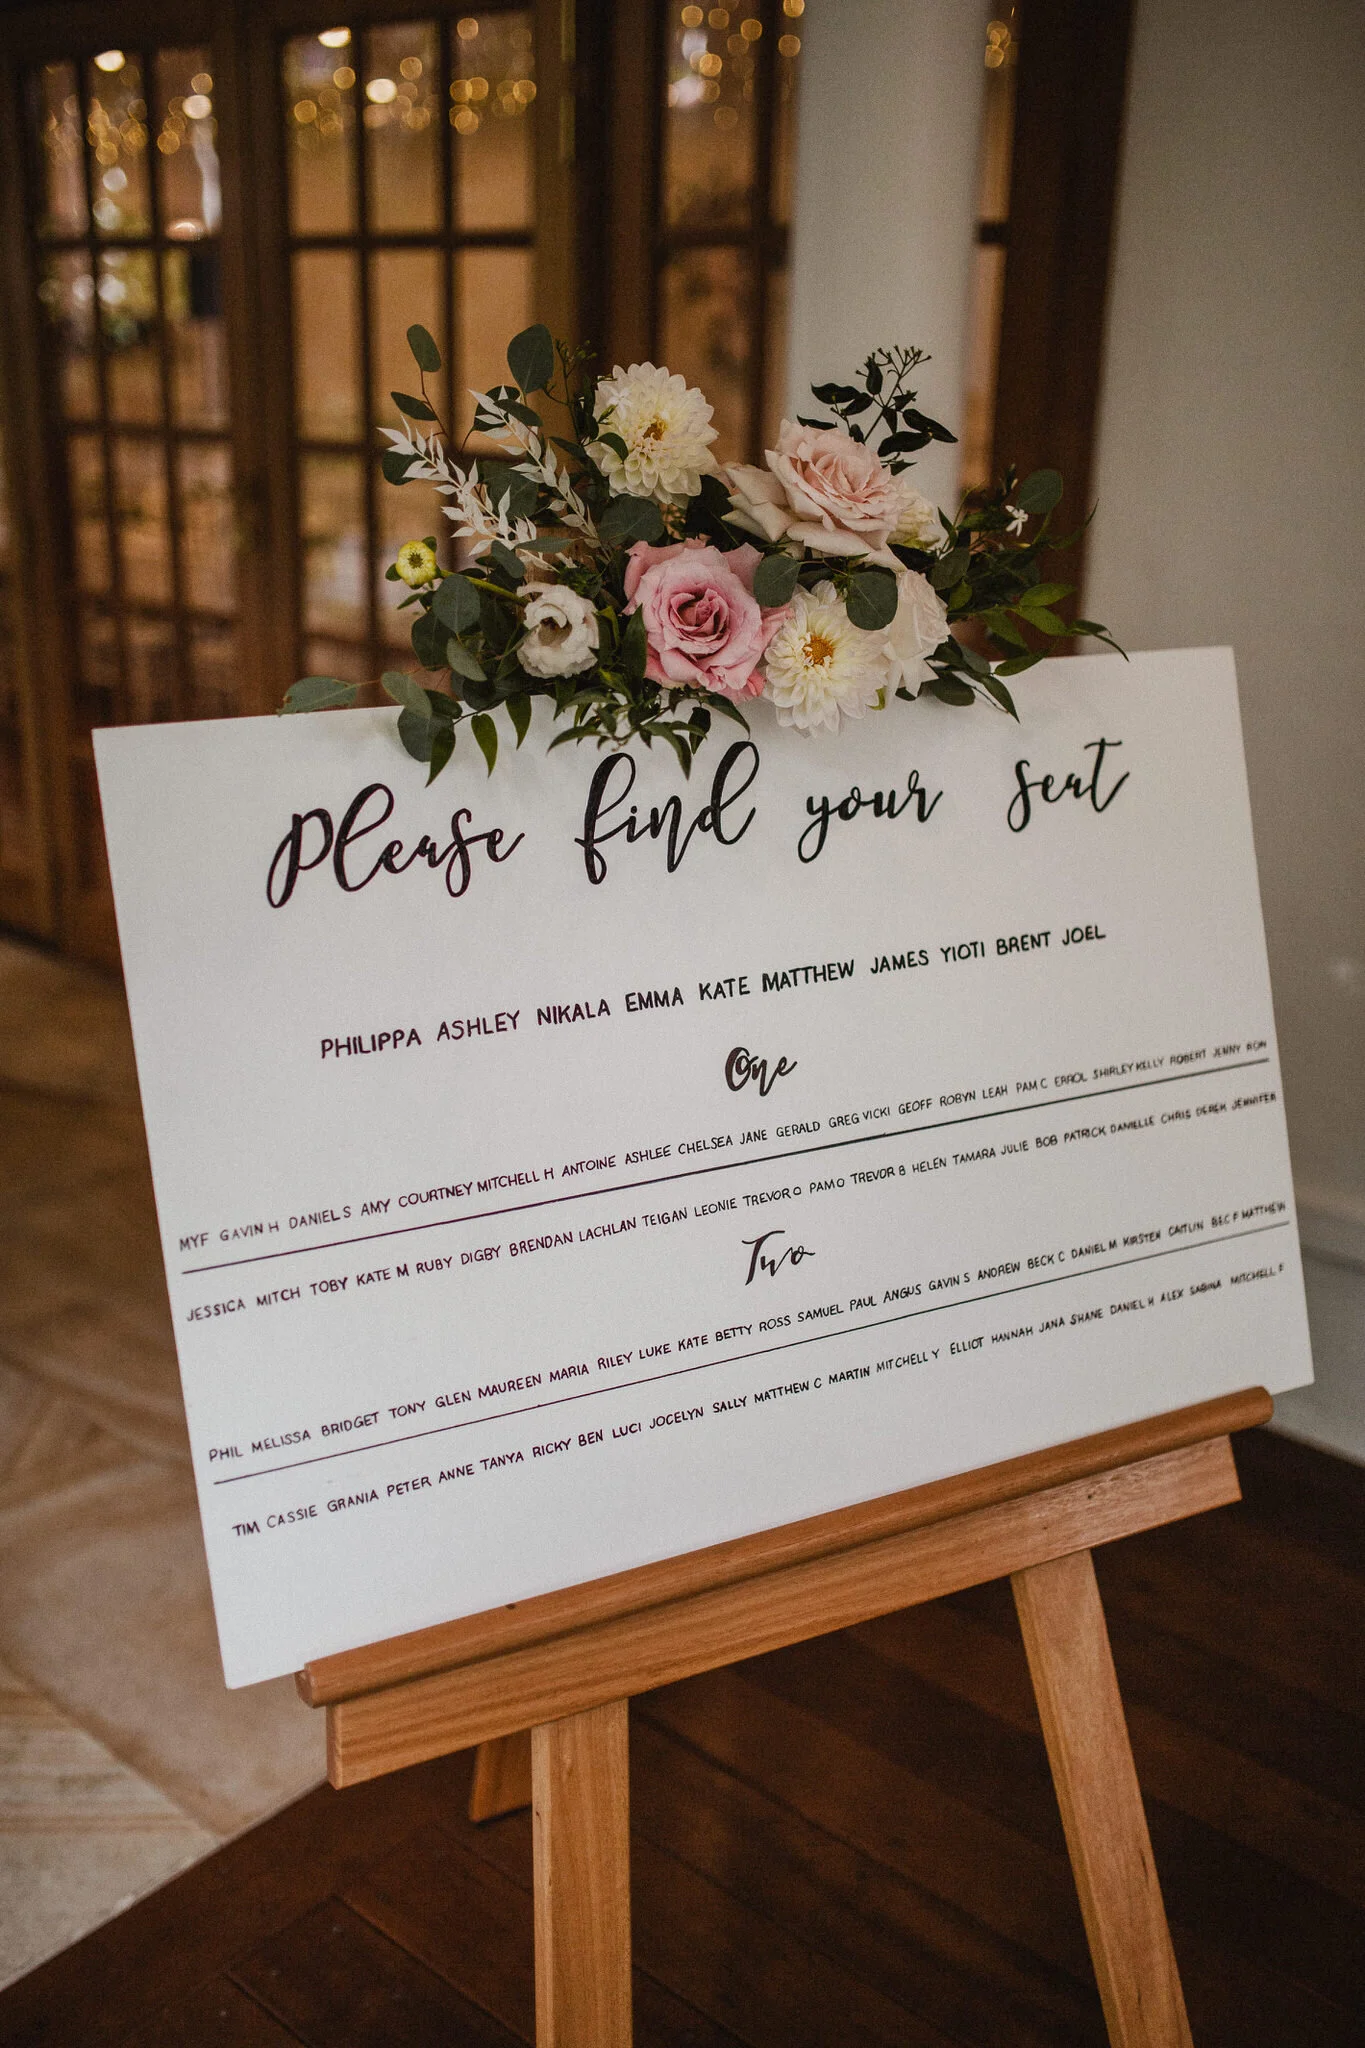 Please find your seat
PHILIPPA ASHLEY NIKALA EMMA KATE MATTHEW JAMES YIOTI BRENT JOEL
One
MYF GAVIN H DANIEL S AMY COURTNEY MITCHELL H ANTOINE ASHLEE CHELSEA JANE GERALD GREG VICKI GEOFF ROBYN LEAH PAM C ERROL SHIRLEY KELLY ROBERT JENNY RON
JESSICA MITCH TOBY KATE M RUBY DIGBY BRENDAN LACHLAN TEIGAN LEONIE TREVOR O PAM O TREVOR B HELEN TAMARA JULIE BOB PATRICK DANIELLE CHRIS DEREK JENNIFER
Two
PHIL MELISSA BRIDGET TONY GLEN MAUREEN MARIA RILEY LUKE KATE BETTY ROSS SAMUEL PAUL ANGUS GAVIN S ANDREW BECK C DANIEL M KIRSTEN CAITLIN BEC F MATTHEW
TIM CASSIE GRANIA PETER ANNE TANYA RICKY BEN LUCI JOCELYN SALLY MATTHEW C MARTIN MITCHELL Y ELLIOT HANNAH JANA SHANE DANIEL H ALEX SABINA MITCHELL F